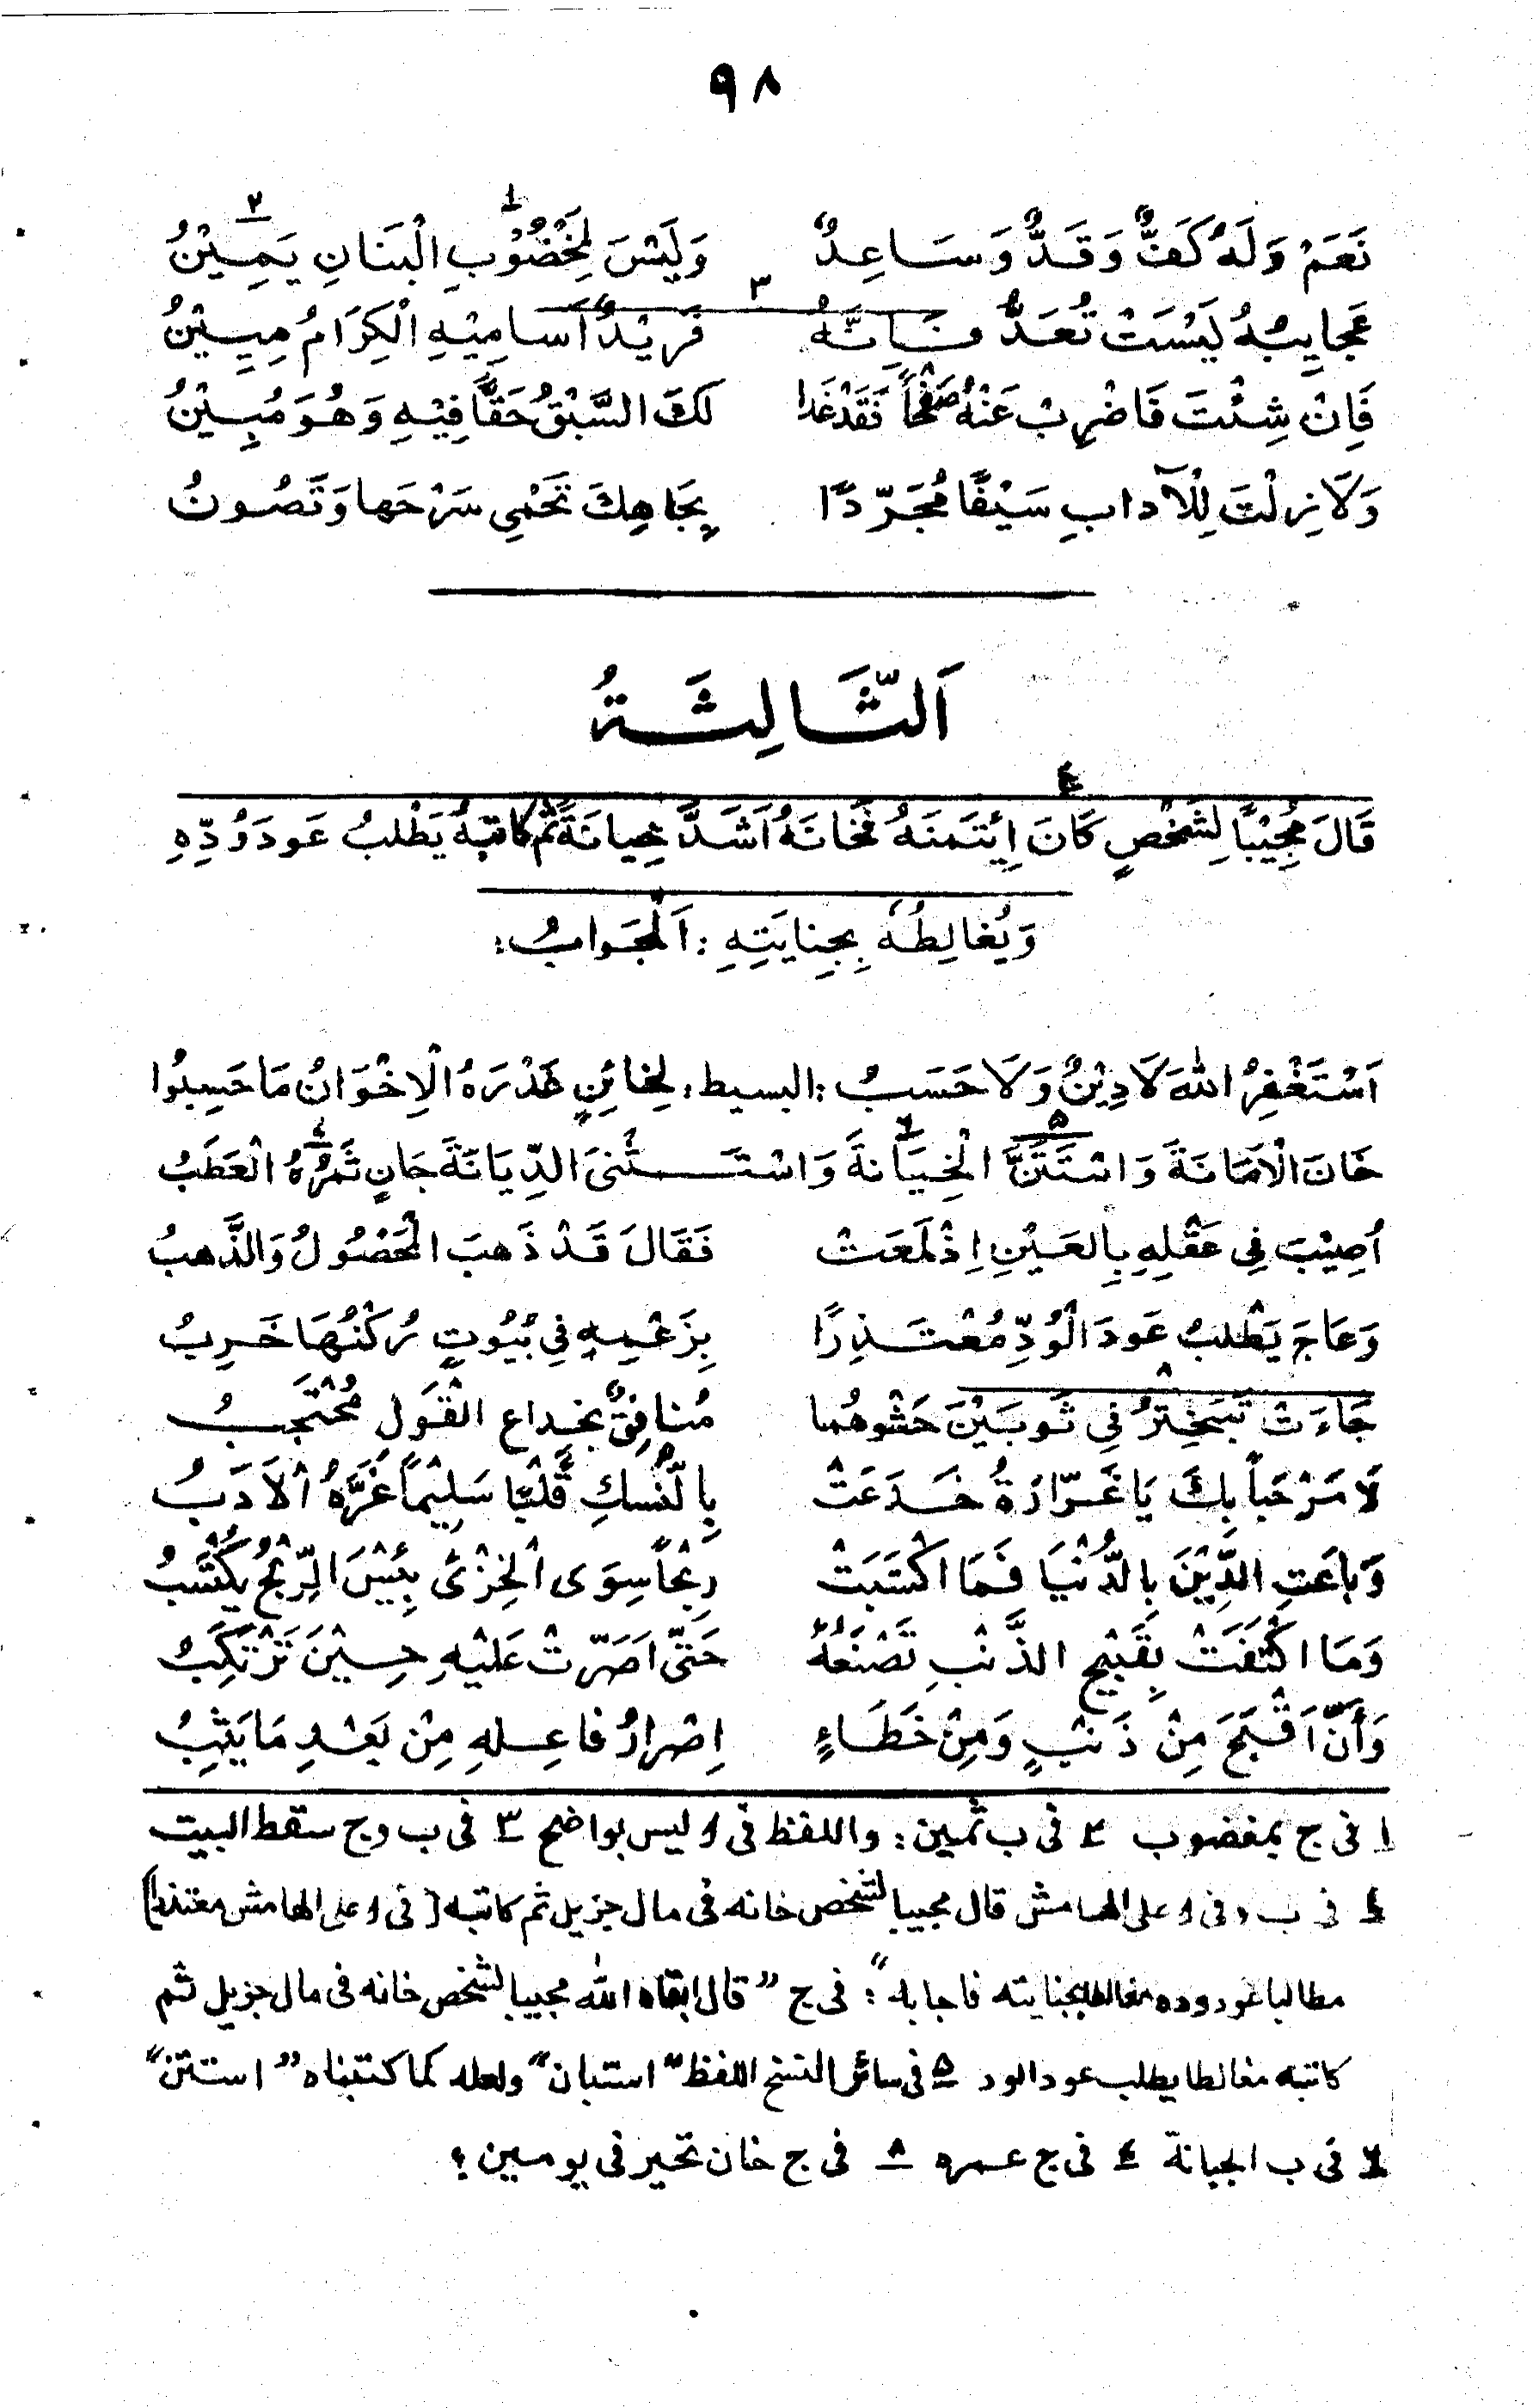 ٩٨
نَعَمْ وَلَهُ كَفٌّ وَقَدٌّ وَسَاعِدٌ وَلَيْسَ لِمَخْضُوْبِ١ الْبَنَانِ يَمِيْنُ٢
عَجايِبُهُ لَيْسَتْ تُعَدُّ فَاِنَّهُ ٣ فَرِيْدٌ اَسامِيْهِ الْكِرَامُ مِيِيْنُ
فَاِنْ شِئْتَ فَاضْرِبْ عَنْهُ صَفْحًا فَقَدْ غَدا لَكَ السَّبْقُ حَقًّا فِيْهِ وَهُوَ مُبِيْنُ
وَلَا زِلْتَ لِلْآدابِ سَيْفًا مُجَرَّدًا بِجَاهِكَ تَحْمِي سَرْحَها وَتَصُونُ
اَلثَّالِثَةُ
قَالَ مُجِيْبًا لِشَخْصٍ كَانَ اِئْتَمَنَهُ٤ فَخانَهُ اَشَدَّ خِيانَةً ثُمَّ كاتَبَهُ يَطْلُبُ عَودَ وُدِّهِ
وَيُغالِطُهُ بِجِنايَتِهِ : اَلْجَوابُ :
اَسْتَغْفِرُ اللهَ لَا دِيْنٌ وَلَا حَسَبُ : البسيط : لِخائِنٍ غَدْرَهُ الْاِخْوَانُ مَا حَسِبُوا
خَانَ الْاَمَانَةَ وَاسْتَنَّ٥ الْخِيَانَةَ٦ وَاسْتَثْنىَ الدِّيَانَةَ جَانٍ ثَمْرُهُ٧ الْعَطَبُ
اُصِيْبَ فِي عَقْلِهِ بِالعَيْنِ اِذْ لَمَعَتْ فَقَالَ قَدْ ذَهبَ الْمَحْصُولُ وَالذَّهبُ
وَعَاجَ يَطْلُبُ عَودَ الْوُدِّ مُعْتَذِرًا بِزَعْمِهِ فِي بُيُوتٍ رُكْنُهَا خَرِبُ
جَاءَتْ تَبَخْتَرُ٨ فِي ثَوبَيْنَ حَشْوهُما مُنافِقٌ بخداع الْقَولِ مُحْتَجِبُ
لَا مَرْحَبًا بِكَ يَا غَرّارَةً خَدَعَتْ بِالنُّسكِ قَلْبًا سَلِيْمًا غَرَّهُ الْاَدَبُ
وَباعَتِ الدِّيْنَ بِالدُّنْيَا فَمَا اكْتَسَبَتْ رِبْحًا سِوَى الْخِزْىَ بِئْسَ الرِّبْحُ يُكْتَسَبُ
وَمَا اكْتَفَتْ بِقَبِيْحِ الذَّنْبِ تَصْنَعُهُ حَتّى اَصَرَّتْ عَلَيْهِ حِيْنَ تَرْتَكِبُ
وَأَنَّ اَقْبَحَ مِنْ ذَنْبٍ وَمِنْ خَطَاءٍ اِصْرارُ فاعِلهِ مِنْ بَعْدِ مَا يَثِبُ
١ فى ج بمغضوب ٢ فى ب ثمين : واللفظ فى ا ليس بواضح ٣ فى ب وج سقط البيت
٤ فى ب وفى ا على الهامش قال مجيبا لشخص خانه فى مال جزيل ثم كاتبه [ فى ا على الهامش معتذرا]
مطالبا عود وده مغالطا بجنايته فاجابه" : فى ج " قال ابقاه الله مجيبا لشخص خانه فى مال جزيل ثم
كاتبه مغالطا يطلب عود الود ٥ فى سائر النسخ اللفظ "استبان" ولعله كما كتبناه "استتن"
٦ فى ب الجبانة ٧ فى ج عمره ٨ فى ج خان تحير فى يومين ؟